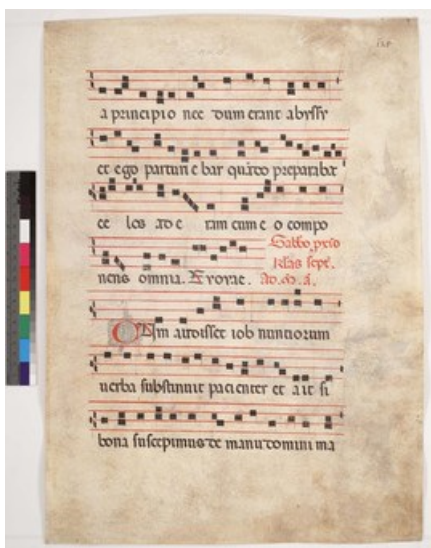 a principio nec dum erant abyssy
et ego parturiebar quādo preparabat
ce los ad e ram cum e o compo
nens omnia. Evovae. Sabbo pmo
Klas sept.
Ad. M. A.
Cum audisset iob nuntiorum
uerba sustinuit pacienter et ait si
bona suscepimus de manu domini ma